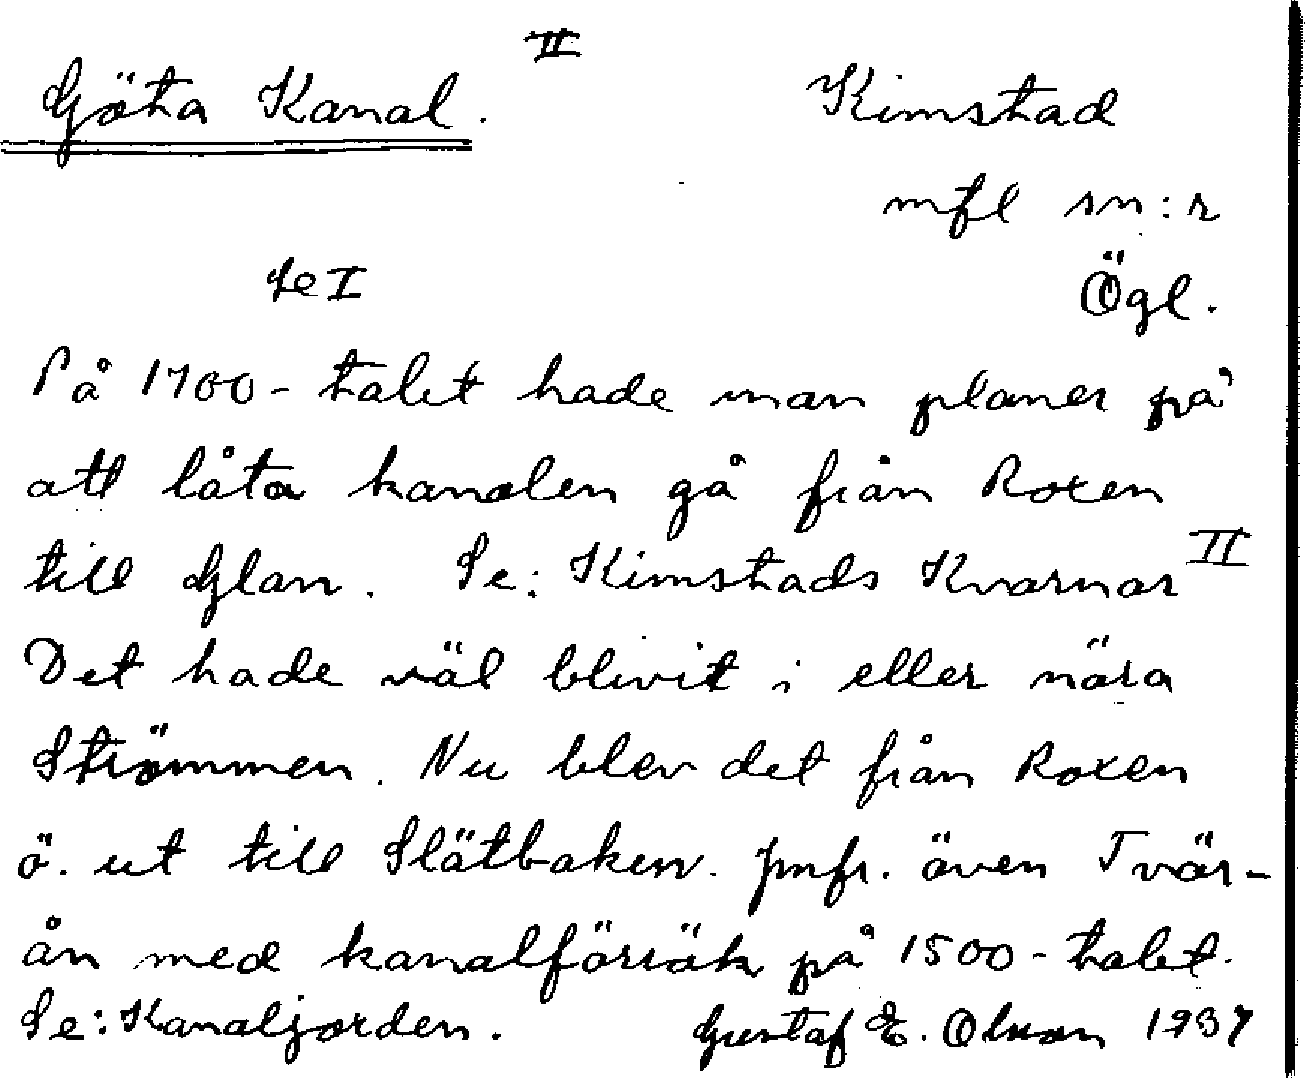 II
Göta Kanal.
Kimstad
mfl sn:r
Se I
Ögl.
På 1700-talet hade man planer på
att låta kanalen gå från Roxen
till Glan. Se: Kimstads Kvarnar II
Det hade väl blivit i eller nära
Strömmen. Nu blev det från Roxen
ö. ut till Slätbaken. jmfr. även Tvär-
ån med kanalförsök på 1500-talet.
Se: Kanaljorden. Gustaf E. Olsson 1937